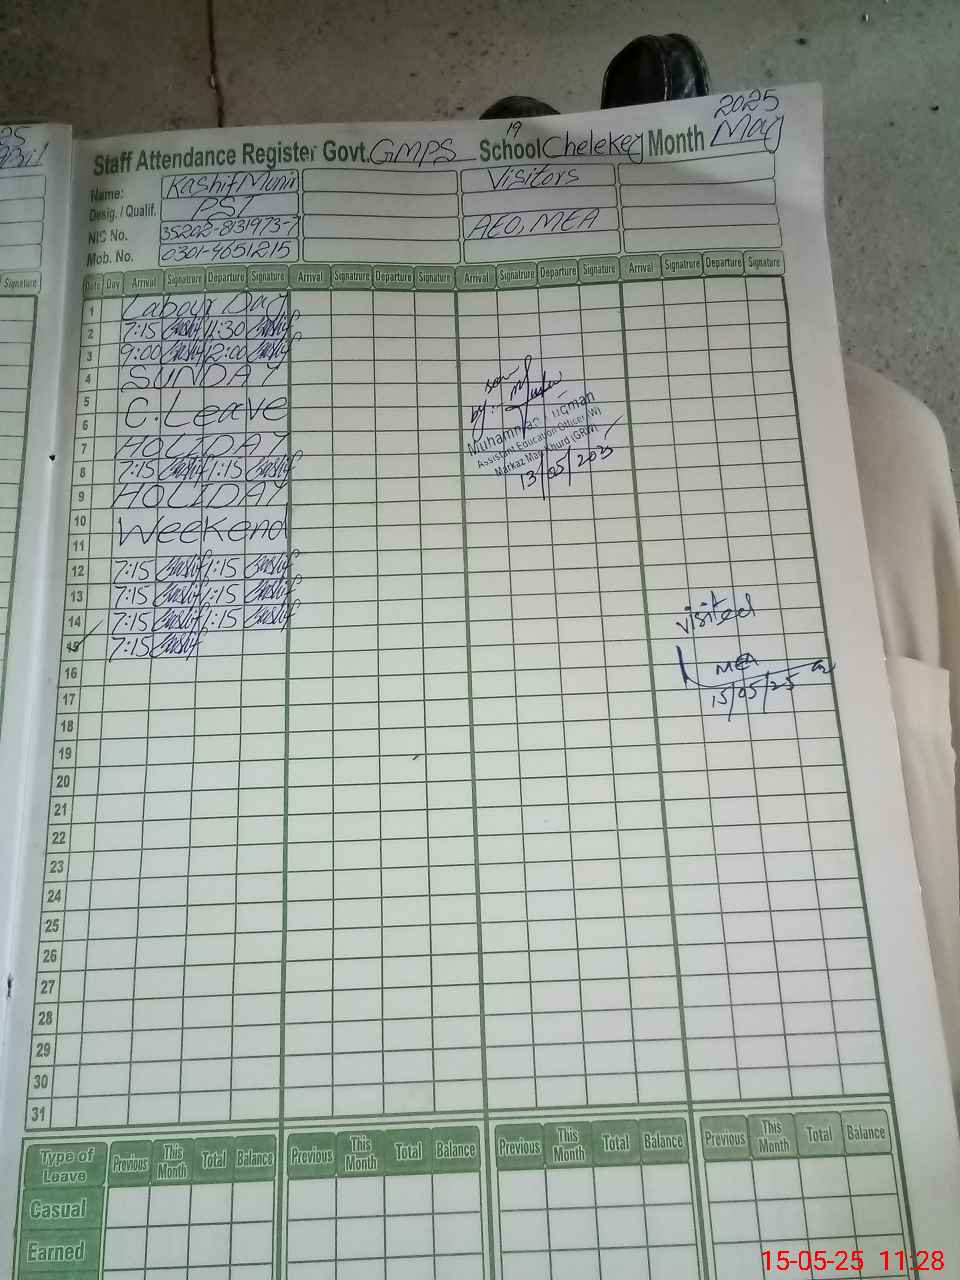 2025
Staff Attendance Register Govt. GMPS School Chelekey Month May
19
Name: Kashif Munir Visitors
Desig. / Qualif. PST
NIC No. 35202-8131973-7 AEO, MEA
Mob. No. 0301-4651215
Signature
Date Day Arrival Signatrure Departure Signature Arrival Signatrure Departure Signature Arrival Signatrure Departure Signature Arrival Signatrure Departure Signature
1 Labour Day
2 7:15 Kashif 11:30 Kashif
3 9:00 Kashif 12:00 Kashif
4 SUNDAY
5
6 C. Leave
7 HOLIDAY
8 7:15 Kashif 1:15 Kashif
9 HOLIDAY
10 Weekend
11
12 7:15 Kashif 1:15 Kashif
13 7:15 Kashif 1:15 Kashif
14 7:15 Kashif 1:15 Kashif
15 7:15 Kashif
16
17
18
19
20
21
22
23
24
25
26
27
28
29
30
31
by:
Assistant Education Officer (W)
13/05/2025
visited
MEA
15/05/25
Type of Leave Previous This Month Total Balance Previous This Month Total Balance Previous This Month Total Balance Previous This Month Total Balance
Casual
Earned
15-05-25 11:28